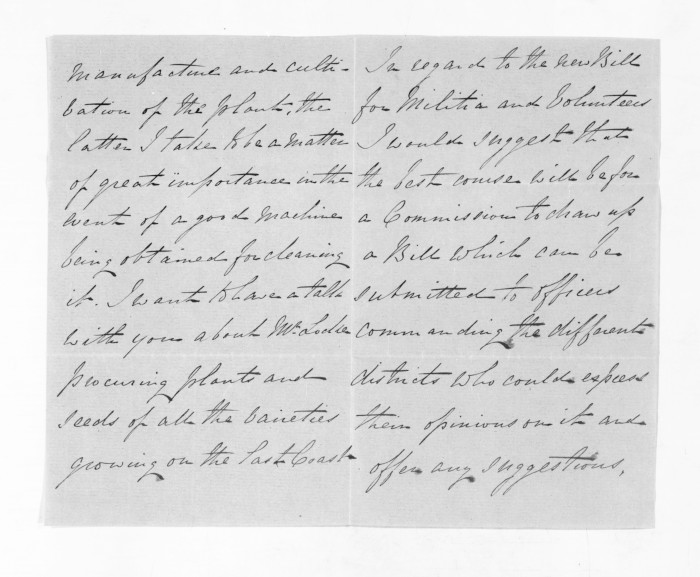 manufacture and culti-
vation of the plant, the
latter I take to be a matter
of great importance in the
event of a good machine
being obtained for cleaning
it. I want to have a talk
with you about Mr Locke
procuring plants and
seeds of all the varieties
growing on the East Coast
In regard to the new Bill
for Militia and Volunteers
I would suggest that
the best course will be for
a Commission to draw up
a Bill which can be
submitted to officers
commanding the different
districts who could express
their opinions on it and
offer any suggestions,